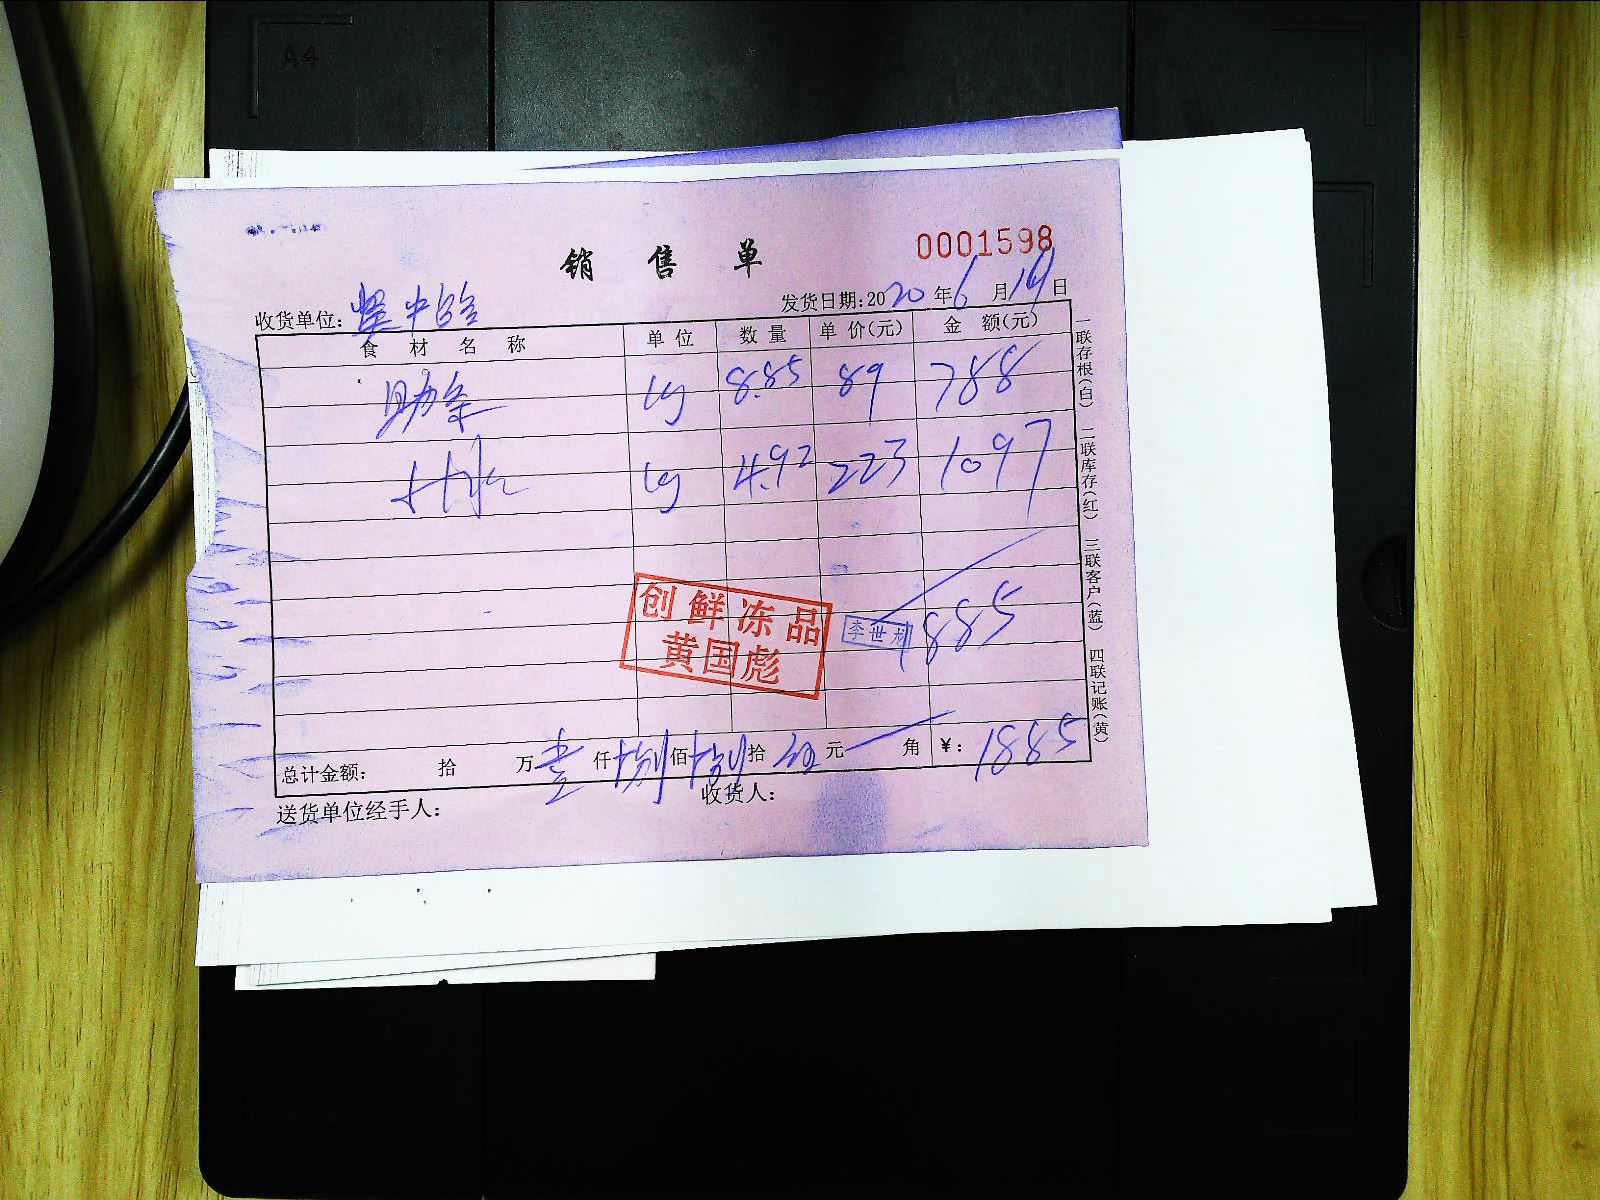 A4
销售单
0001598
收货单位:
发货日期:2020年6月19日
食材名称 单位 数量 单价(元) 金额(元)
助条 kg 8.85 89 788
kg 4.92 223 1097
1885
创鲜冻品
黄国彪
李世
总计金额: 拾 万壹仟捌佰捌拾伍元 角 ¥:1885
送货单位经手人: 收货人:
一联存根(白) 二联库存(红) 三联客户(蓝) 四联记账(黄)